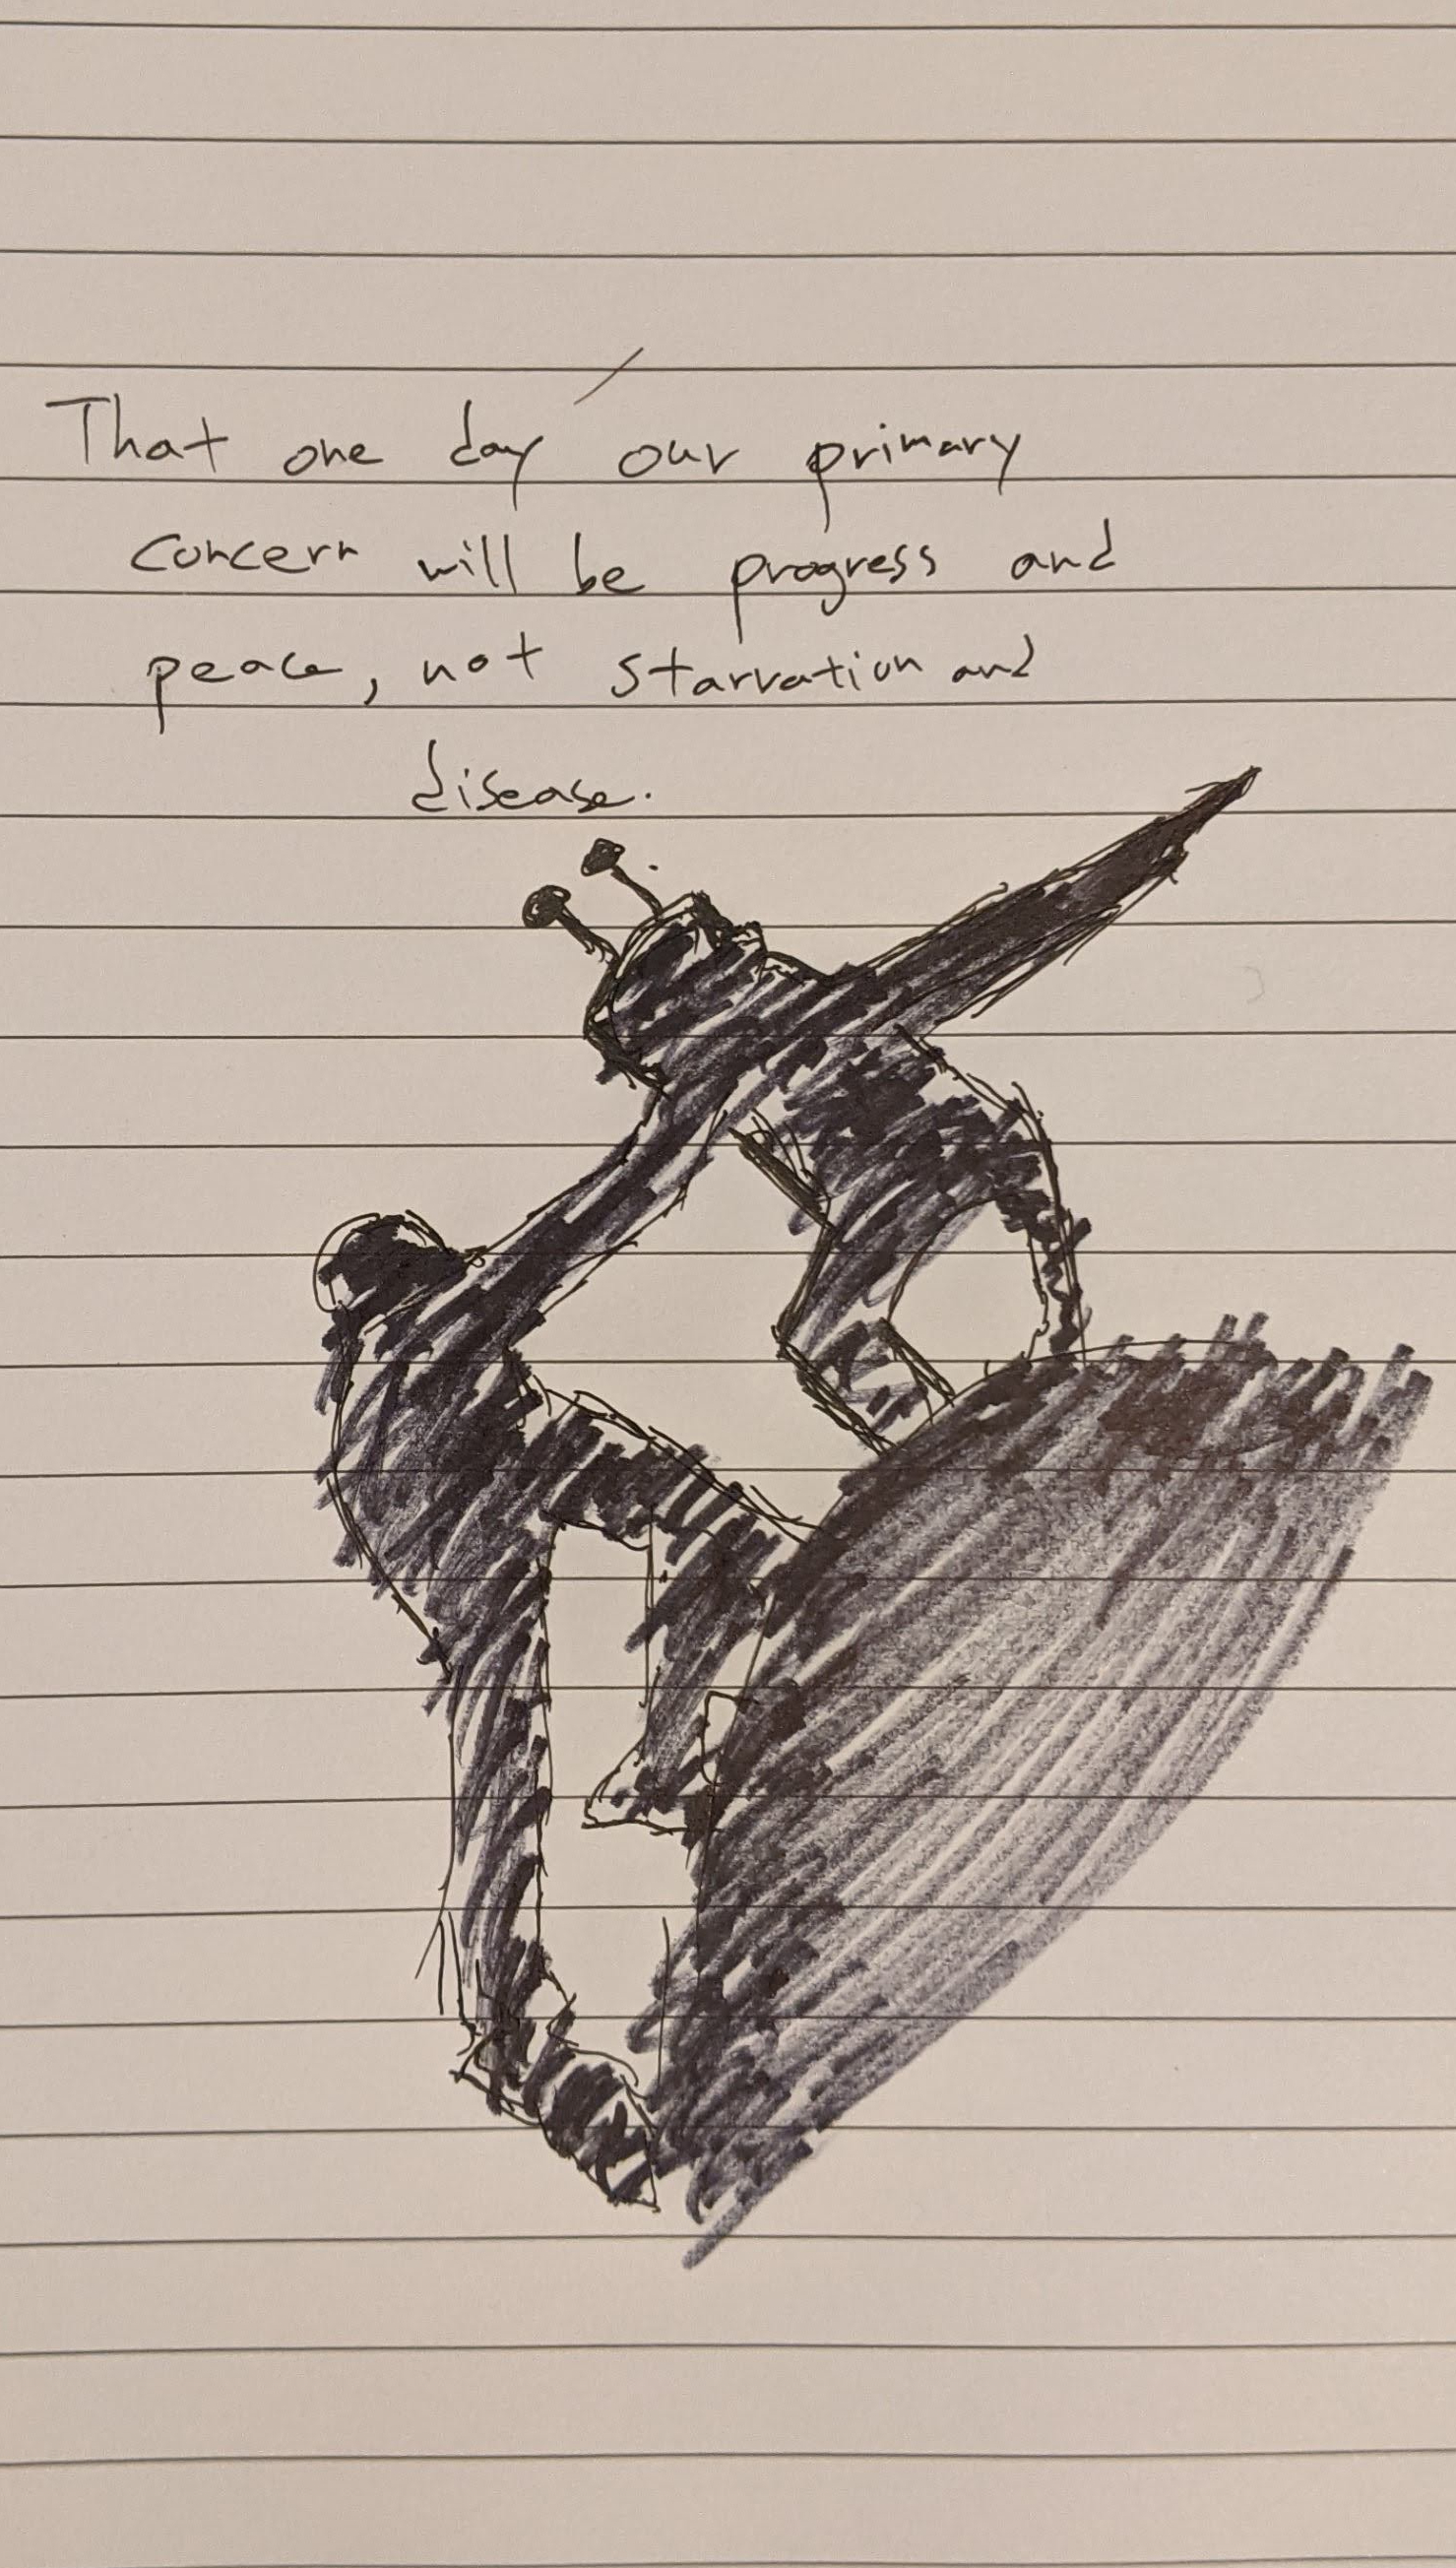 That one day our primary
concern will be progress and
peace, not starvation and
disease.